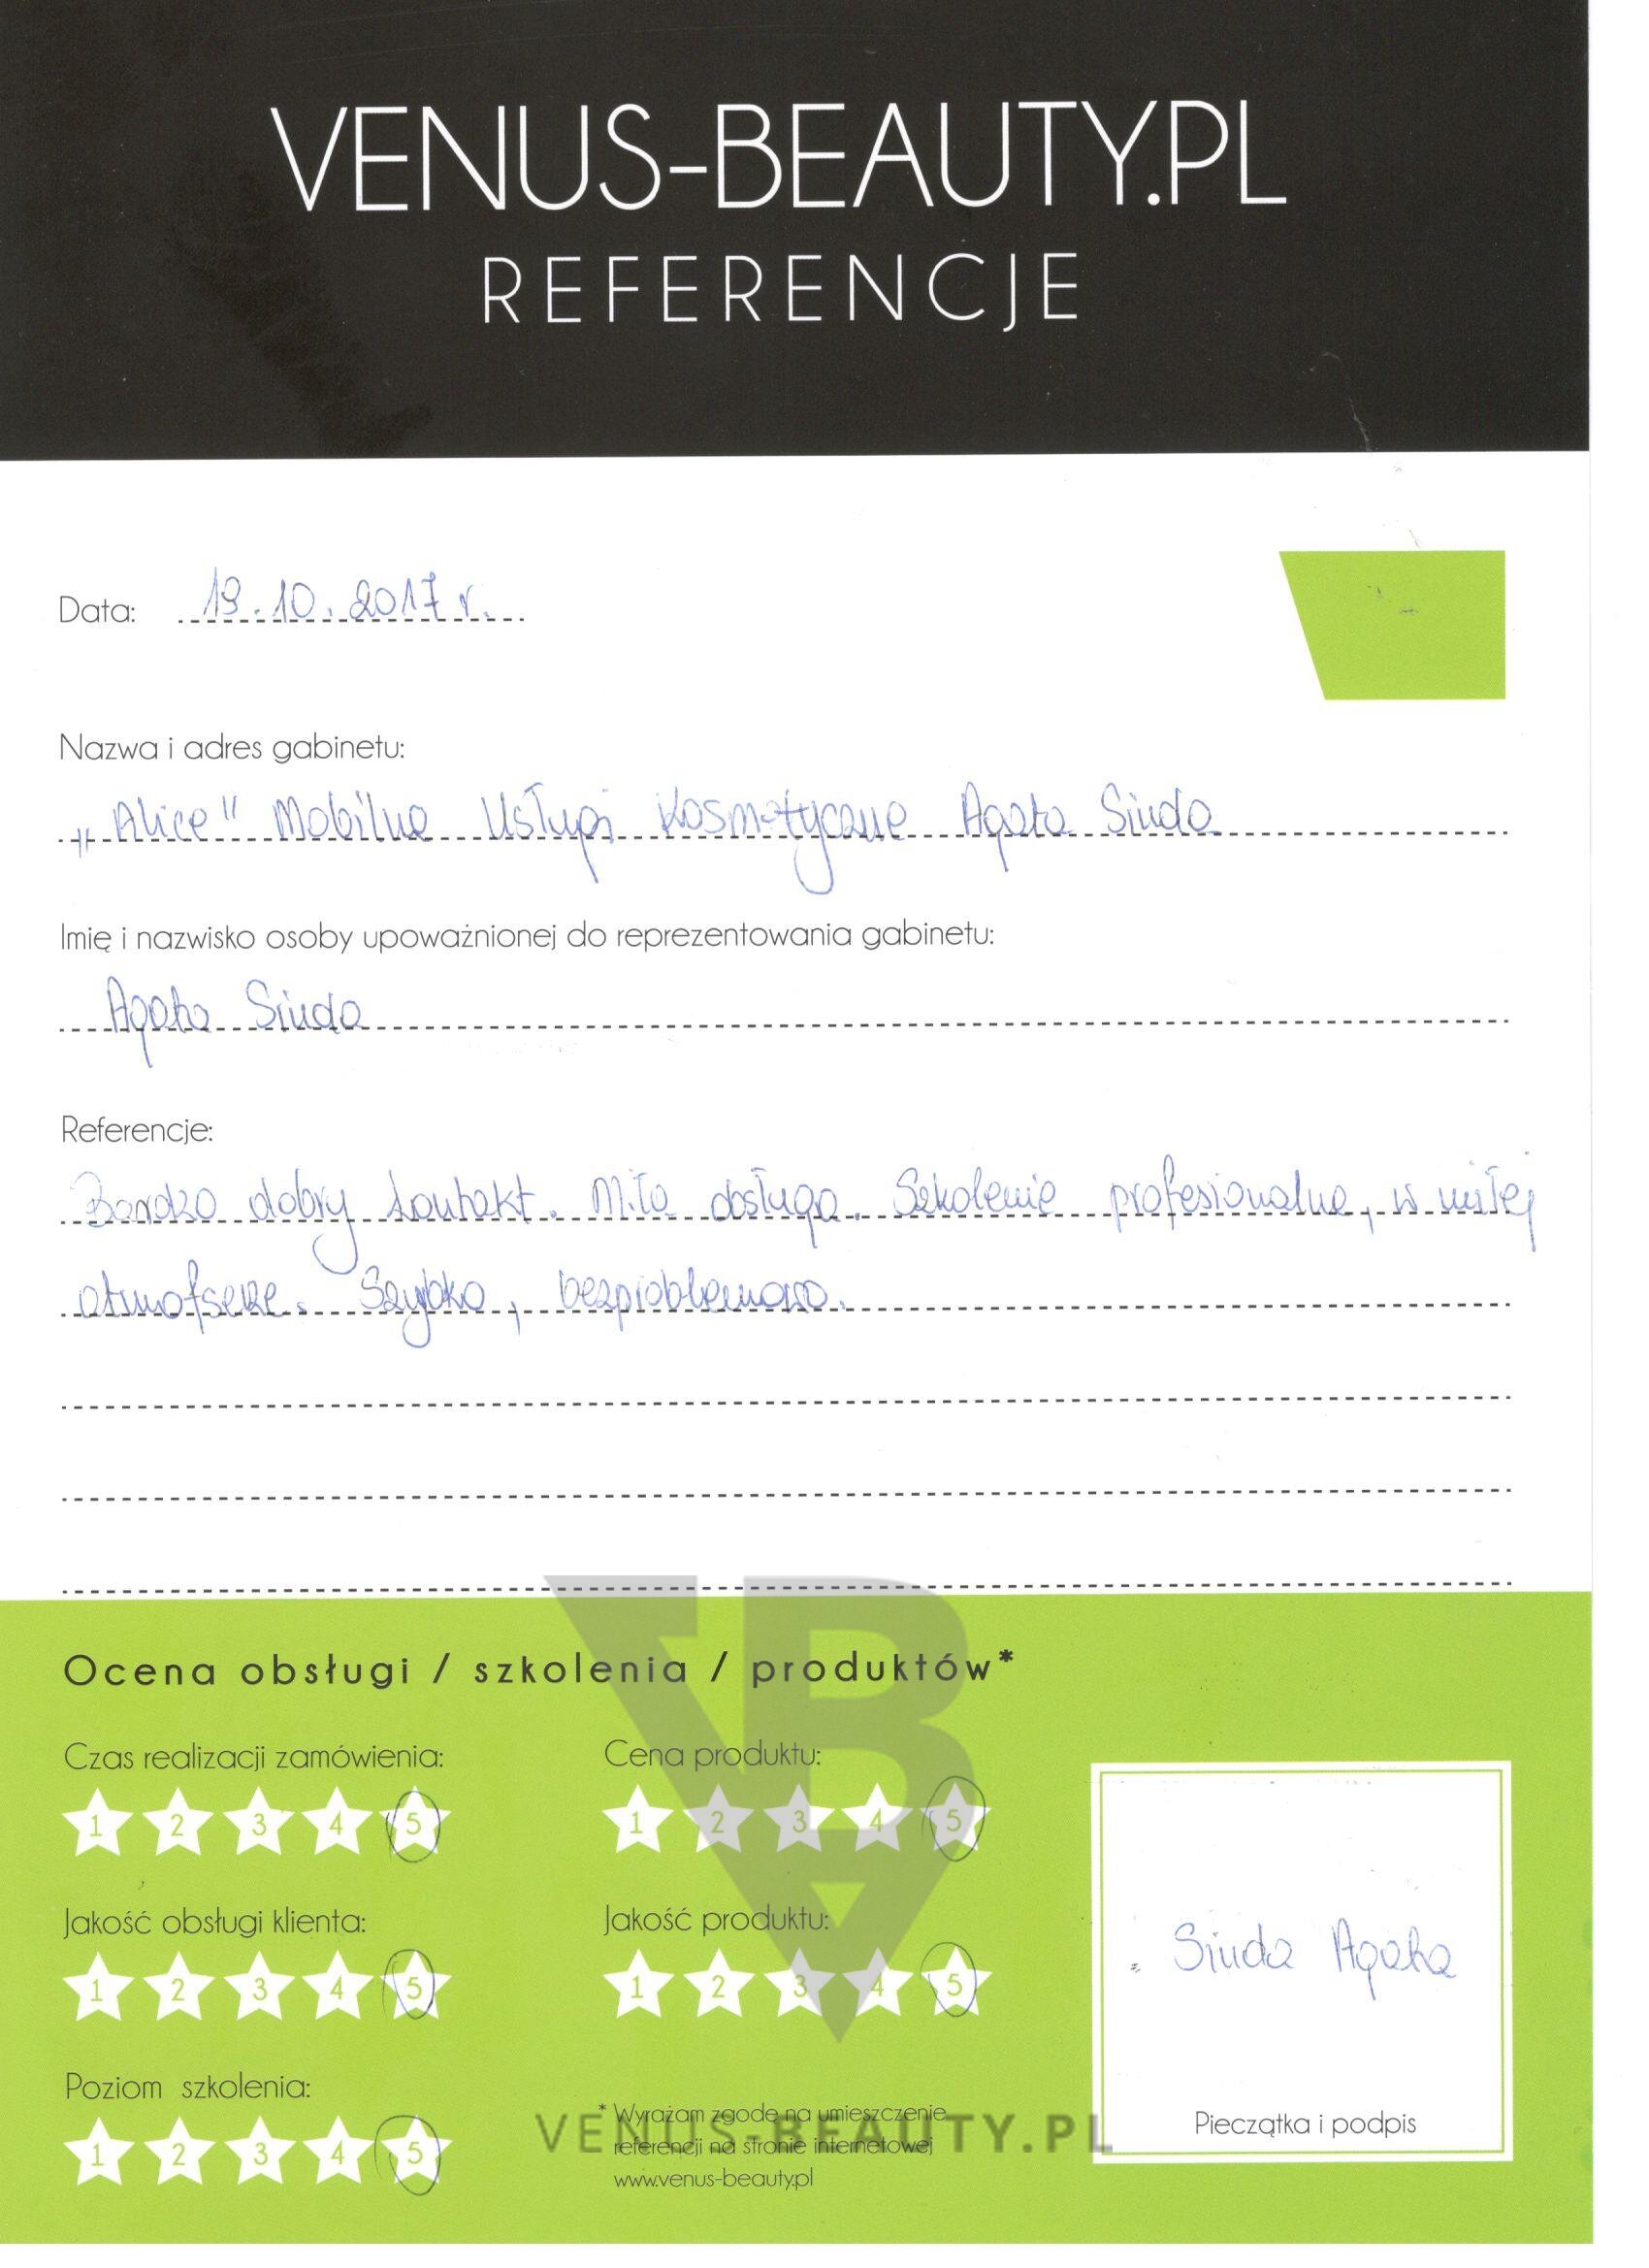 VENUS-BEAUTY.PL
REFERENCJE
Data: 19.10.2017 r.
Nazwa i adres gabinetu:
„Alice" Mobilne Usługi Kosmetyczne Agata Siuda
Imię i nazwisko osoby upoważnionej do reprezentowania gabinetu:
Agata Siuda
Referencje:
Bardzo dobry kontakt. Miła obsługa. Szkolenie profesionalne, w miłej
atmofserze. Szybko, bezproblemowo.
Ocena obsługi / szkolenia / produktów*
Czas realizacji zamówienia:
1 2 3 4 5
Cena produktu:
1 2 3 4 5
Jakość obsługi klienta:
1 2 3 4 5
Jakość produktu:
1 2 3 4 5
Poziom szkolenia:
1 2 3 4 5
* Wyrażam zgodę na umieszczenie
referencji na stronie internetowej
www.venus-beauty.pl
Siuda Agata
Pieczątka i podpis
VBA
VENUS-BEAUTY.PL